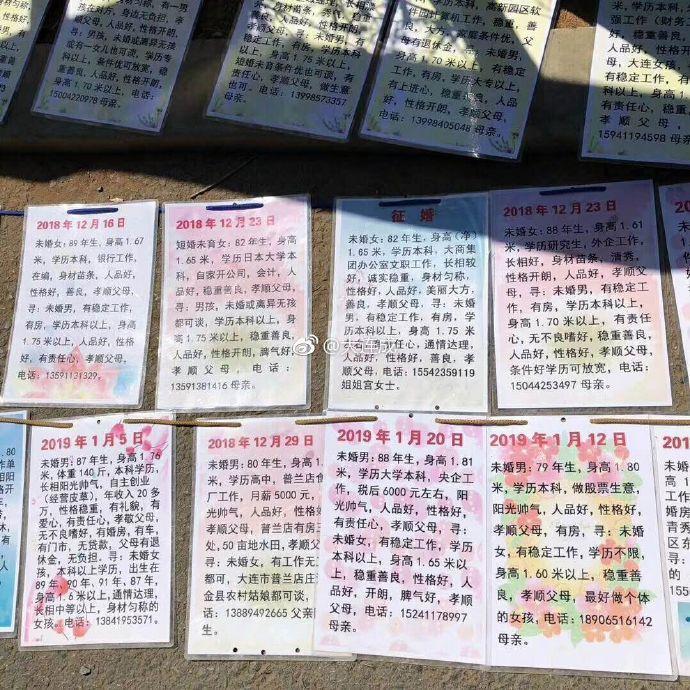 在好，身边无负担，孝
寻：男孩，未婚或离异无孩
或有一女儿也可谈，学历专
以上，条件优可放宽，稳
重善良，人品好，性格开朗，
身高 1.70 米以上，电话：
15004220978 母亲。
短婚未育条件优也可谈，有
责任心，孝顺父母，做生意
也可。电话：13998573357
母亲。
有房，学历大专以上，
有上进心，稳重善良，人品
好，性格开朗，孝顺父母，
电话：13998405048 母亲。
有稳定工作，有房，学历本
科以上，身高 1.75 米以上，
有责任心，人品好，性格好，
孝顺父母，电话：
15941194598 母亲。
2018 年 12 月 16 日
未婚女：89 年生，身高 1.67
米，学历本科，银行工作，
在编，身材苗条，人品好，
性格好，善良，孝顺父母，
寻：未婚男，有稳定工作，
有房，学历本科以上，身高
1.75 米以上，人品好，性格
好，有责任心，孝顺父母，
电话：13591131329。
2018 年 12 月 23 日
短婚未育女：82 年生，身高
1.65 米，学历日本大学本
科，自家开公司，会计，人
品好，稳重善良，孝顺父母，
寻：男孩，未婚或离异无孩
都可谈，学历本科以上，身
高 1.75 米以上，稳重善良，
人品好，性格开朗，脾气好，
孝顺父母，电话：
13591381416 母亲。
征 婚
未婚女：82 年生，身高（净）
1.65 米，学历本科，大商集
团办公室文职工作，长相较
好，诚实稳重，身材匀称，
性格好，人品好，美丽大方，
善良，孝顺父母，寻：未婚
男，有稳定工作，有房，学
历本科以上，身高 1.75 米
以上，有责任心，通情达理，
人品好，性格好，善良，孝
顺父母，电话：15542359119
姐姐宫女士。
2018 年 12 月 23 日
未婚女：88 年生，身高 1.61
米，学历研究生，外企工作，
长相好，身材苗条，清秀，
性格开朗，人品好，孝顺父
母，寻：未婚男，有稳定工
作，有房，学历本科以上，
身高 1.70 米以上，有责任
心，无不良嗜好，稳重善良，
人品好，性格好，孝顺父母，
条件好学历可放宽，电话：
15044253497 母亲。
2019 年 1 月 5 日
未婚男：87 年生，身高 1.76
米，体重 140 斤，本科学历，
长相阳光帅气，自主创业
（经营皮草），年收入 20 多
万，性格稳重，有礼貌，有
爱心，有责任心，孝敬父母，
无不良嗜好，有婚房，有车，
有门市，无贷款，父母有退
休金，无负担。寻：未婚女
孩，本科以上学历，出生在
89 年，90 年，91 年，87 年，
身高 1.6 米以上，通情达理，
长相中等以上，身材匀称的
女孩。电话：13841953571。
2018 年 12 月 29 日
未婚男：80 年生，身高 1.8
米，学历高中，普兰店食
厂工作，月薪 5000 元，
光帅气，人品好，性格好
孝顺父母，普兰店有房三
处，50 亩地水田，孝顺父
寻：未婚女，有工作无工
都可，大连市普兰店庄
金县农村姑娘都可谈，
13889492665 父亲
生。
2019 年 1 月 20 日
未婚男：88 年生，身高 1.81
米，学历大学本科，央企工
作，税后 6000 元左右，阳光
帅气，人品好，性格好，有
责任心，孝顺父母，寻：未
婚女，有稳定工作，学历本
科以上，身高 1.60 米以上，
稳重善良，性格好，人品
好，开朗，脾气好，孝顺
父母，电话：15241178997
母亲。
2019 年 1 月 12 日
未婚男：79 年生，身高 1.80
米，学历本科，做股票生意，
阳光帅气，人品好，性格好，
孝顺父母，有房，寻：未婚
女，有稳定工作，学历不限，
身高 1.60 米以上，稳重善
良，孝顺父母，最好做个体
的女孩，电话：18906516142
母亲。